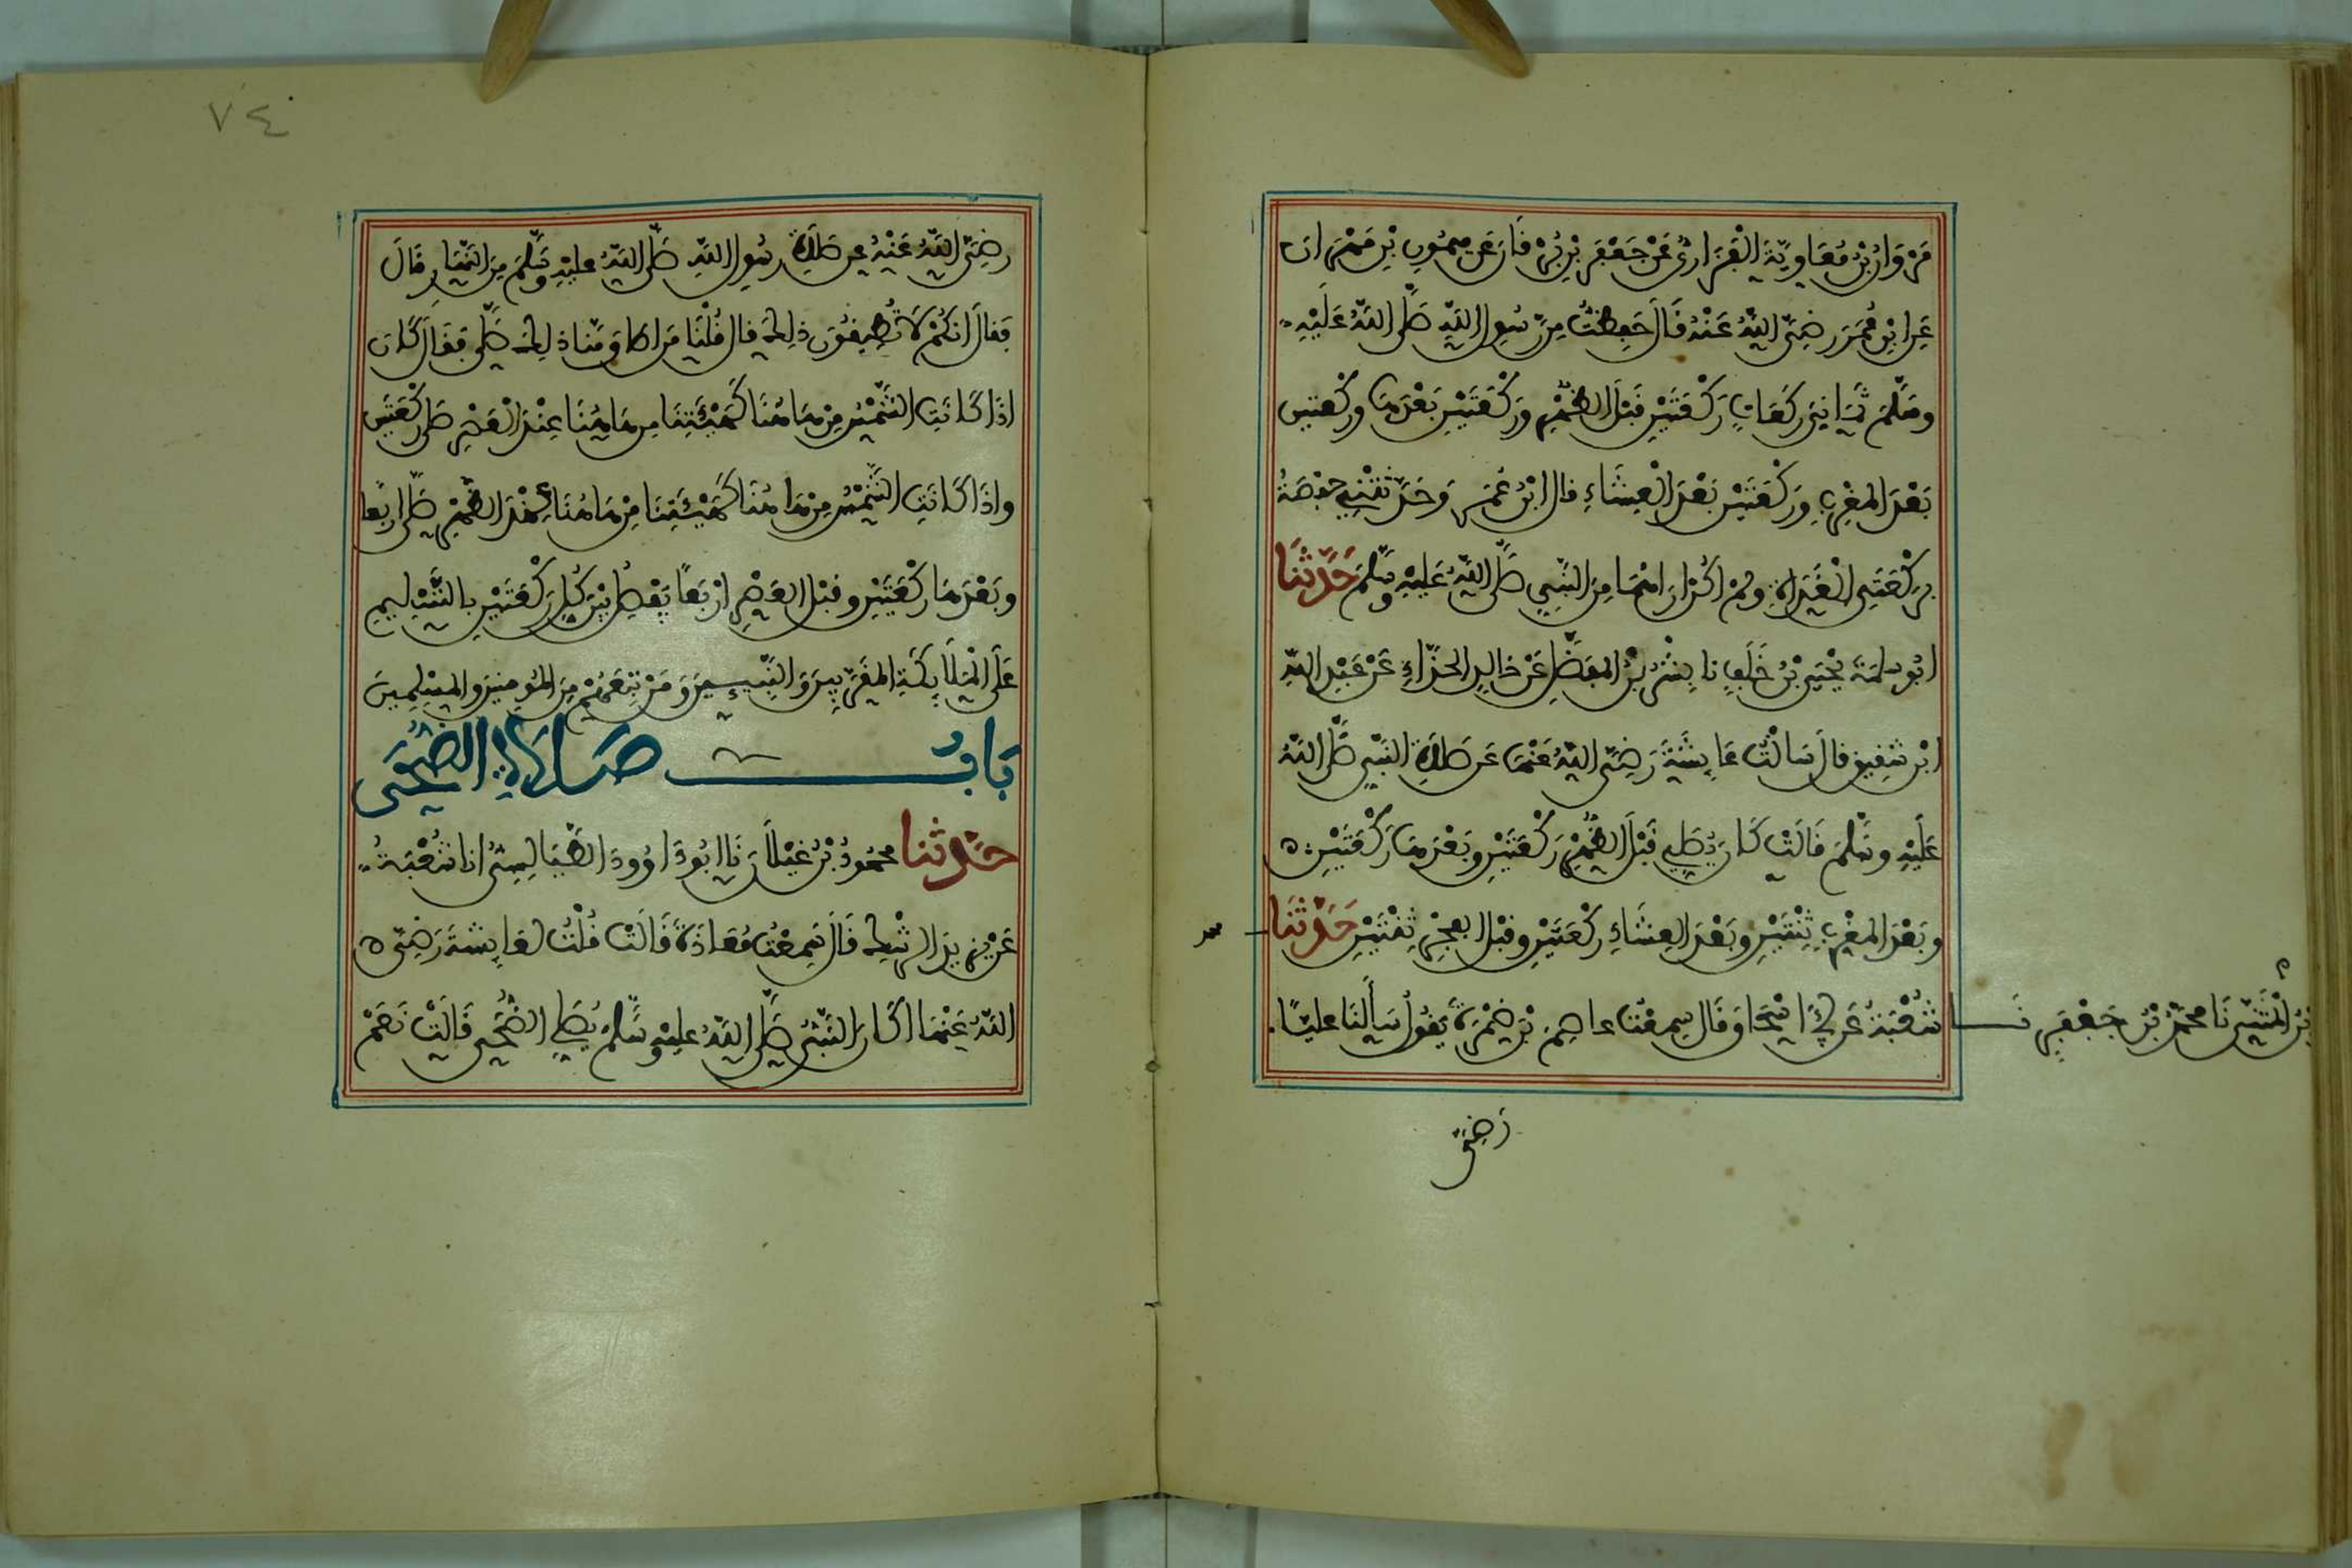 مَرْوَانُ بْنُ مُعَاوِيَةَ الْفَزَارِيُّ عَنْ جَعْفَرِ بْنِ بُرْقَانَ عَنْ مَيْمُونِ بْنِ مِهْرَانَ
عَنِ ابْنِ عُمَرَ رَضِيَ اللَّهُ عَنْهُ قَالَ حَفِظْتُ مِن رَّسُولِ اللَّهِ صَلَّى اللَّهُ عَلَيْهِ
وَسَلَّمَ ثَمَانِيَ رَكَعَاتٍ رَكْعَتَيْنِ قَبْلَ الظُّهْرِ وَرَكْعَتَيْنِ بَعْدَهَا وَرَكْعَتَيْنِ
بَعْدَ الْمَغْرِبِ وَرَكْعَتَيْنِ بَعْدَ الْعِشَاءِ قَالَ ابْنُ عُمَرَ وَحَدَّثَتْنِي حَفْصَةُ
بِرَكْعَتَيِ الْغَدَاةِ وَلَمْ أَكُنْ أَرَاهُمَا مِنَ النَّبِيِّ صَلَّى اللَّهُ عَلَيْهِ وَسَلَّمَ حَدَّثَنَا
أَبُو سَلَمَةَ يَحْيَى بْنُ خَلَفٍ نَا بِشْرُ بْنُ الْمُفَضَّلِ عَنْ خَالِدٍ الْحَذَّاءِ عَنْ عَبْدِ اللَّهِ
ابْنِ شَقِيقٍ قَالَ سَأَلْتُ عَائِشَةَ رَضِيَ اللَّهُ عَنْهَا عَنْ صَلَاةِ النَّبِيِّ صَلَّى اللَّهُ
عَلَيْهِ وَسَلَّمَ قَالَتْ كَانَ يُصَلِّي قَبْلَ الظُّهْرِ رَكْعَتَيْنِ وَبَعْدَهَا رَكْعَتَيْنِ ه
وَبَعْدَ الْمَغْرِبِ ثِنْتَيْنِ وَبَعْدَ الْعِشَاءِ رَكْعَتَيْنِ وَقَبْلَ الْفَجْرِ ثِنْتَيْنِ حَدَّثَنَا محمد
بْنُ الْمُثَنَّى نَا مُحَمَّدُ بْنُ جَعْفَرٍ نَا شُعْبَةُ عَنْ أَبِي إِسْحَاقَ قَالَ سَمِعْتُ عَاصِمَ بْنَ ضَمْرَةَ يَقُولُ سَأَلْنَا عَلِيًّا
رَضِيَ
٧٤
رَضِيَ اللَّهُ عَنْهُ عَن صَلَاةِ رَسُولِ اللَّهِ صَلَّى اللَّهُ عَلَيْهِ وَسَلَّمَ مِنَ النَّهَارِ قَالَ
فَقَالَ إِنَّكُمْ لَا تُطِيقُونَ ذَلِكَ قَالَ قُلْنَا مَنْ أَطَاقَ مِنَّا ذَلِكَ صَلَّى فَقَالَ كَانَ
إِذَا كَانَتِ الشَّمْسُ مِنْ هَاهُنَا كَهَيْئَتِهَا مِنْ هَاهُنَا عِنْدَ الْعَصْرِ صَلَّى رَكْعَتَيْنِ
وَإِذَا كَانَتِ الشَّمْسُ مِنْ هَاهُنَا كَهَيْئَتِهَا مِنْ هَاهُنَا عِنْدَ الظُّهْرِ صَلَّى أَرْبَعًا
وَبَعْدَهَا رَكْعَتَيْنِ وَقَبْلَ الْعَصْرِ أَرْبَعًا يَفْصِلُ بَيْنَ كُلِّ رَكْعَتَيْنِ بِالتَّسْلِيمِ
عَلَى الْمَلَائِكَةِ الْمُقَرَّبِينَ وَالنَّبِيِّينَ وَمَنْ تَبِعَهُمْ مِنَ الْمُؤْمِنِينَ وَالْمُسْلِمِينَ
بَابُ صَلَاةِ الضُّحَى
حَدَّثَنَا مَحْمُودُ بْنُ غَيْلَانَ نَا أَبُو دَاوُودَ الطَّيَالِسِيُّ أَنَا شُعْبَةُ
عَنْ يَزِيدَ الرِّشْكِ قَالَ سَمِعْتُ مُعَاذَةَ قَالَتْ قُلْتُ لِعَائِشَةَ رَضِيَ ه
اللَّهُ عَنْهَا أَكَانَ النَّبِيُّ صَلَّى اللَّهُ عَلَيْهِ وَسَلَّمَ يُصَلِّي الضُّحَى قَالَتْ نَعَمْ